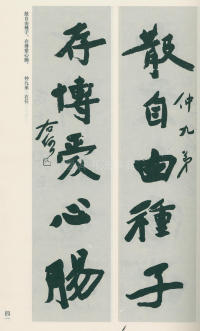 散自由種子
仲九弟
存博爱心腸
右任
散自由種子，存博愛心腸。
仲九弟　右任
四